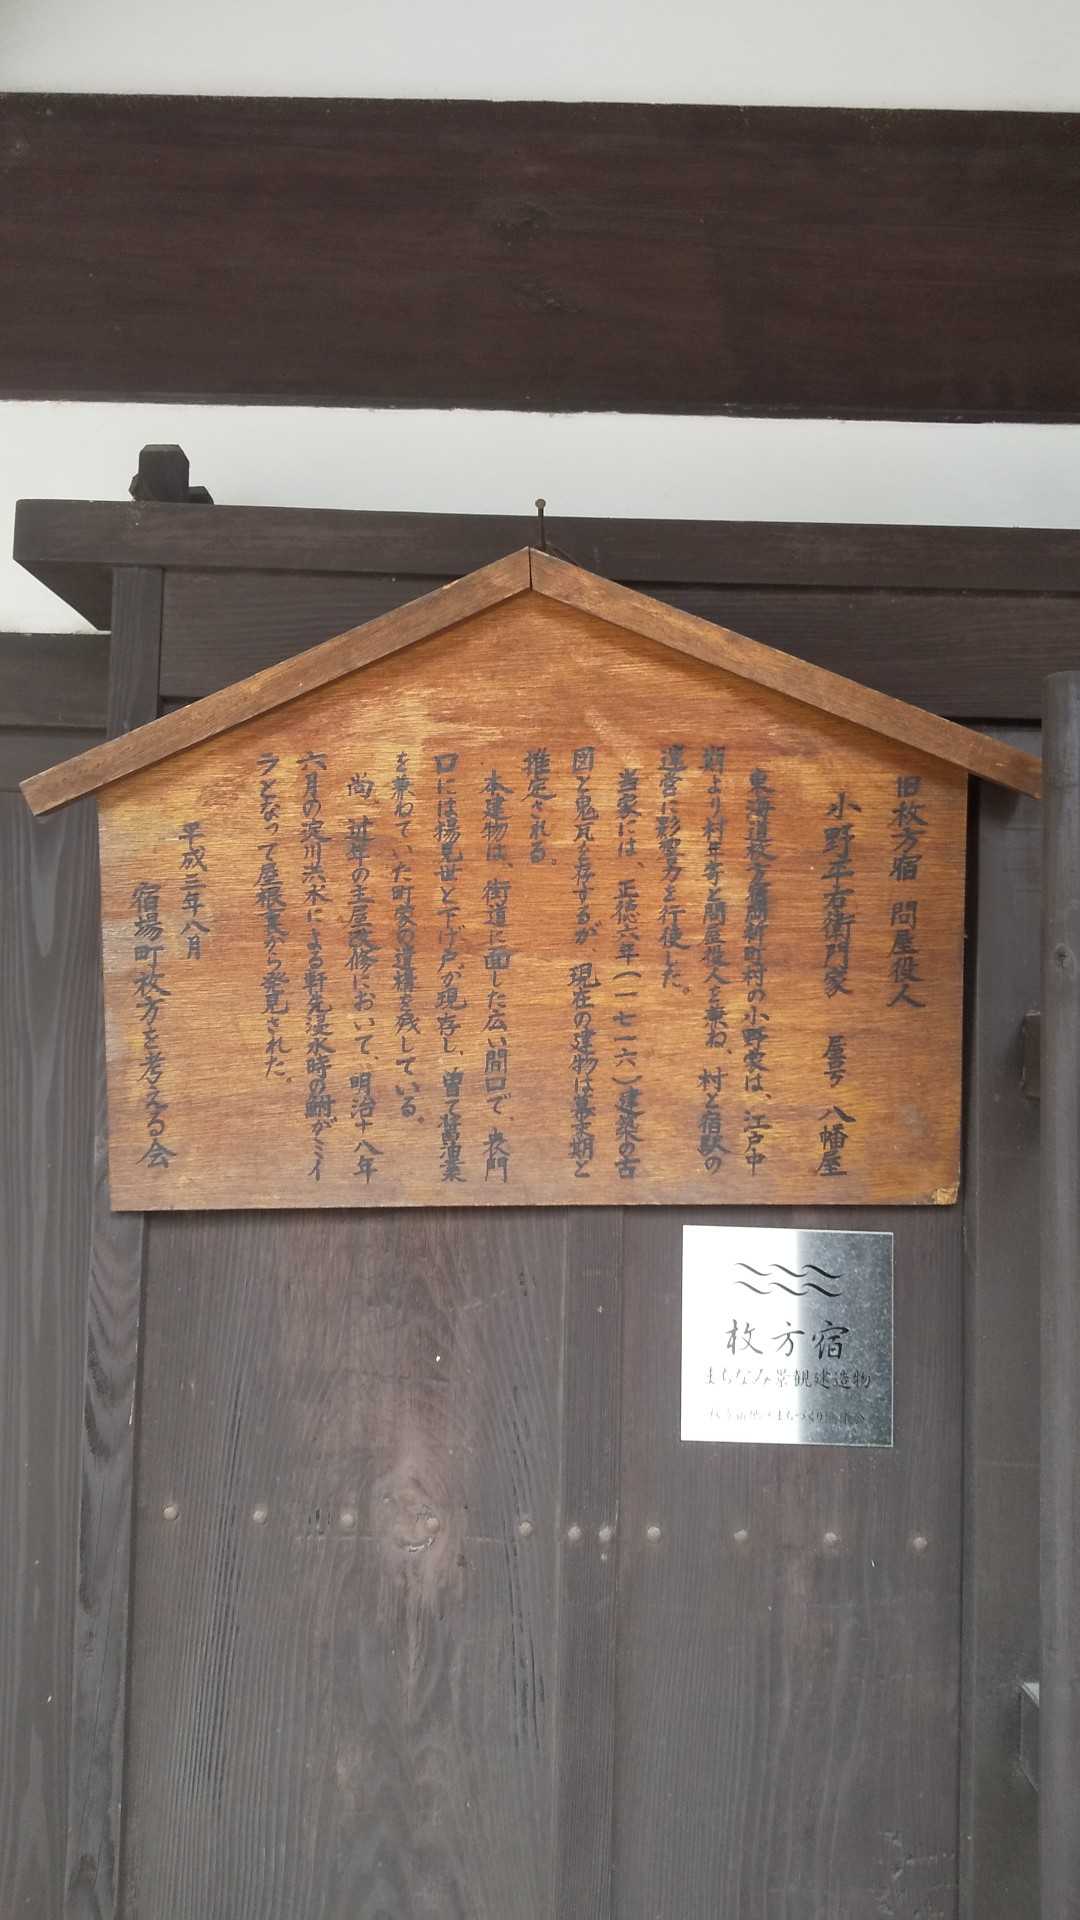 旧枚方宿 問屋役人
小野平右衛門家 屋号 八幡屋
東海道枚方宿岡新町村の小野家は、江戸中
期より村年寄と問屋役人を兼ね、村と宿駅の
運営に影響力を行使した。
当家には、正徳六年(一七一六)建築の古
図と鬼瓦を存するが、現在の建物は幕末期と
推定される。
本建物は、街道に面した広い間口で、表門
口には揚見世と下げ戸が現存し、曽て醤油業
を兼ねていた町家の遺構を残している。
尚、近年の主屋改修において、明治十八年
六月の淀川洪水による軒先浸水時の鮒がミイ
ラとなって屋根裏から発見された。
平成三年八月
宿場町枚方を考える会
枚方宿
まちなみ景観建造物